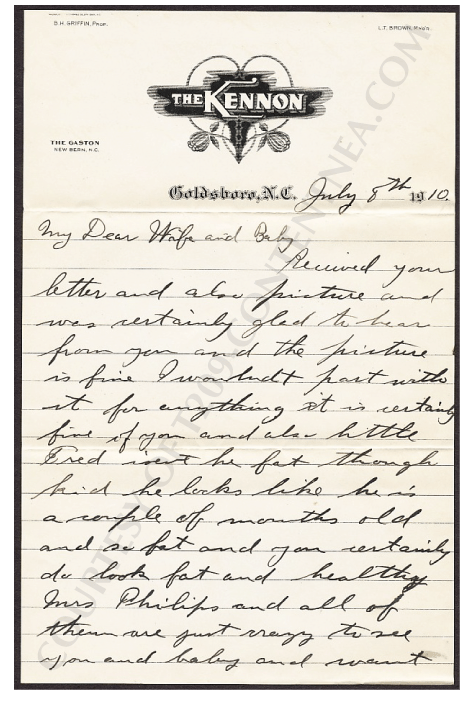 B.H. GRIFFIN, PROP.
L.T. BROWN, MNG'R.
THE KENNON
THE GASTON
NEW BERN, N.C.
Goldsboro, N.C. July 8th 1910.
My Dear Wife and Baby
Received your
letter and also picture and
was certainly glad to hear
from you and the picture
is fine I wouldn't part with
it for anything it is certainly
fine of you and also little
Fred isnt he fat though
kid he looks like he is
a couple of months old
and so fat and you certainly
do look fat and healthy
Mrs Philips and all of
them are just crazy to see
you and baby and want